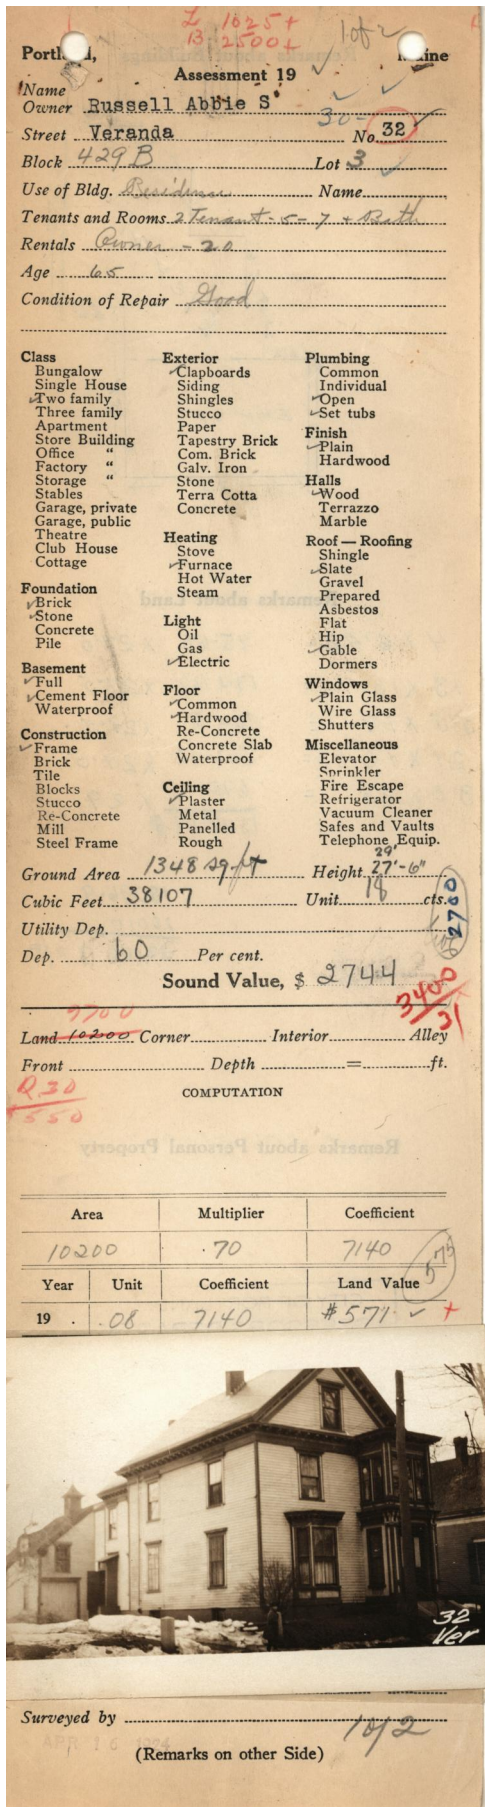 L 1025+
B 2500+
1 of 2
Portland, Maine
Assessment 19
Name
Owner Russell Abbie S
30-
Street Veranda No. 32
Block 429B Lot 3
Use of Bldg. Residence Name
Tenants and Rooms 2 Tenant - 5 - 7 + Bath
Rentals Owner - 20
Age 65
Condition of Repair Good
Class
Bungalow
Single House
✓Two family
Three family
Apartment
Store Building
Office "
Factory "
Storage "
Stables
Garage, private
Garage, public
Theatre
Club House
Cottage
Foundation
✓Brick
✓Stone
Concrete
Pile
Basement
✓Full
✓Cement Floor
Waterproof
Construction
✓Frame
Brick
Tile
Blocks
Stucco
Re-Concrete
Mill
Steel Frame
Exterior
✓Clapboards
Siding
Shingles
Stucco
Paper
Tapestry Brick
Com. Brick
Galv. Iron
Stone
Terra Cotta
Concrete
Heating
Stove
✓Furnace
Hot Water
Steam
Light
Oil
Gas
✓Electric
Floor
✓Common
✓Hardwood
Re-Concrete
Concrete Slab
Waterproof
Ceiling
✓Plaster
Metal
Panelled
Rough
Plumbing
Common
Individual
✓Open
✓Set tubs
Finish
✓Plain
Hardwood
Halls
✓Wood
Terrazzo
Marble
Roof — Roofing
Shingle
✓Slate
Gravel
Prepared
Asbestos
Flat
Hip
✓Gable
Dormers
Windows
✓Plain Glass
Wire Glass
Shutters
Miscellaneous
Elevator
Sprinkler
Fire Escape
Refrigerator
Vacuum Cleaner
Safes and Vaults
Telephone Equip.
29'
Ground Area 1348 sq. ft Height 27'-6"
Cubic Feet 38107 Unit 18 cts.
2760
Utility Dep.
Dep. 60 Per cent.
Sound Value, $ 2744
3400/31
7700
Land 10200 Corner Interior Alley
Front Depth = ft.
Q 30
+550
COMPUTATION
Area Multiplier Coefficient
10200 .70 7140
575
Year Unit Coefficient Land Value
19 . .08 7140 #571 ✓ +
32
Ver
Surveyed by
1 of 2
APR 16 1924
(Remarks on other Side)